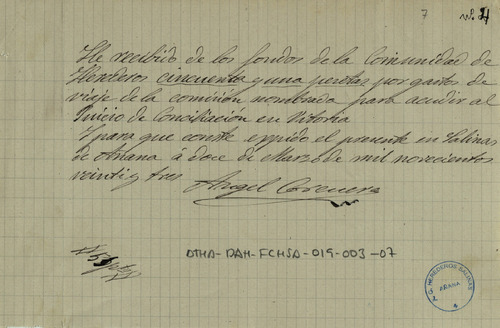 7 nº 4
He recibido de los fondos de la Comunidad de
Herederos cincuenta y una pesetas por gastos de
viaje de la comisión nombrada para acudir al
Juicio de Conciliación en Vitoria
Y para que conste expido el presente en Salinas
de Añana á doce de Marzo de mil novecientos
veinti y tres
Angel
DTHA-DAH-FCHSA-019-003-07
HEREDEROS SALINAS
AÑANA